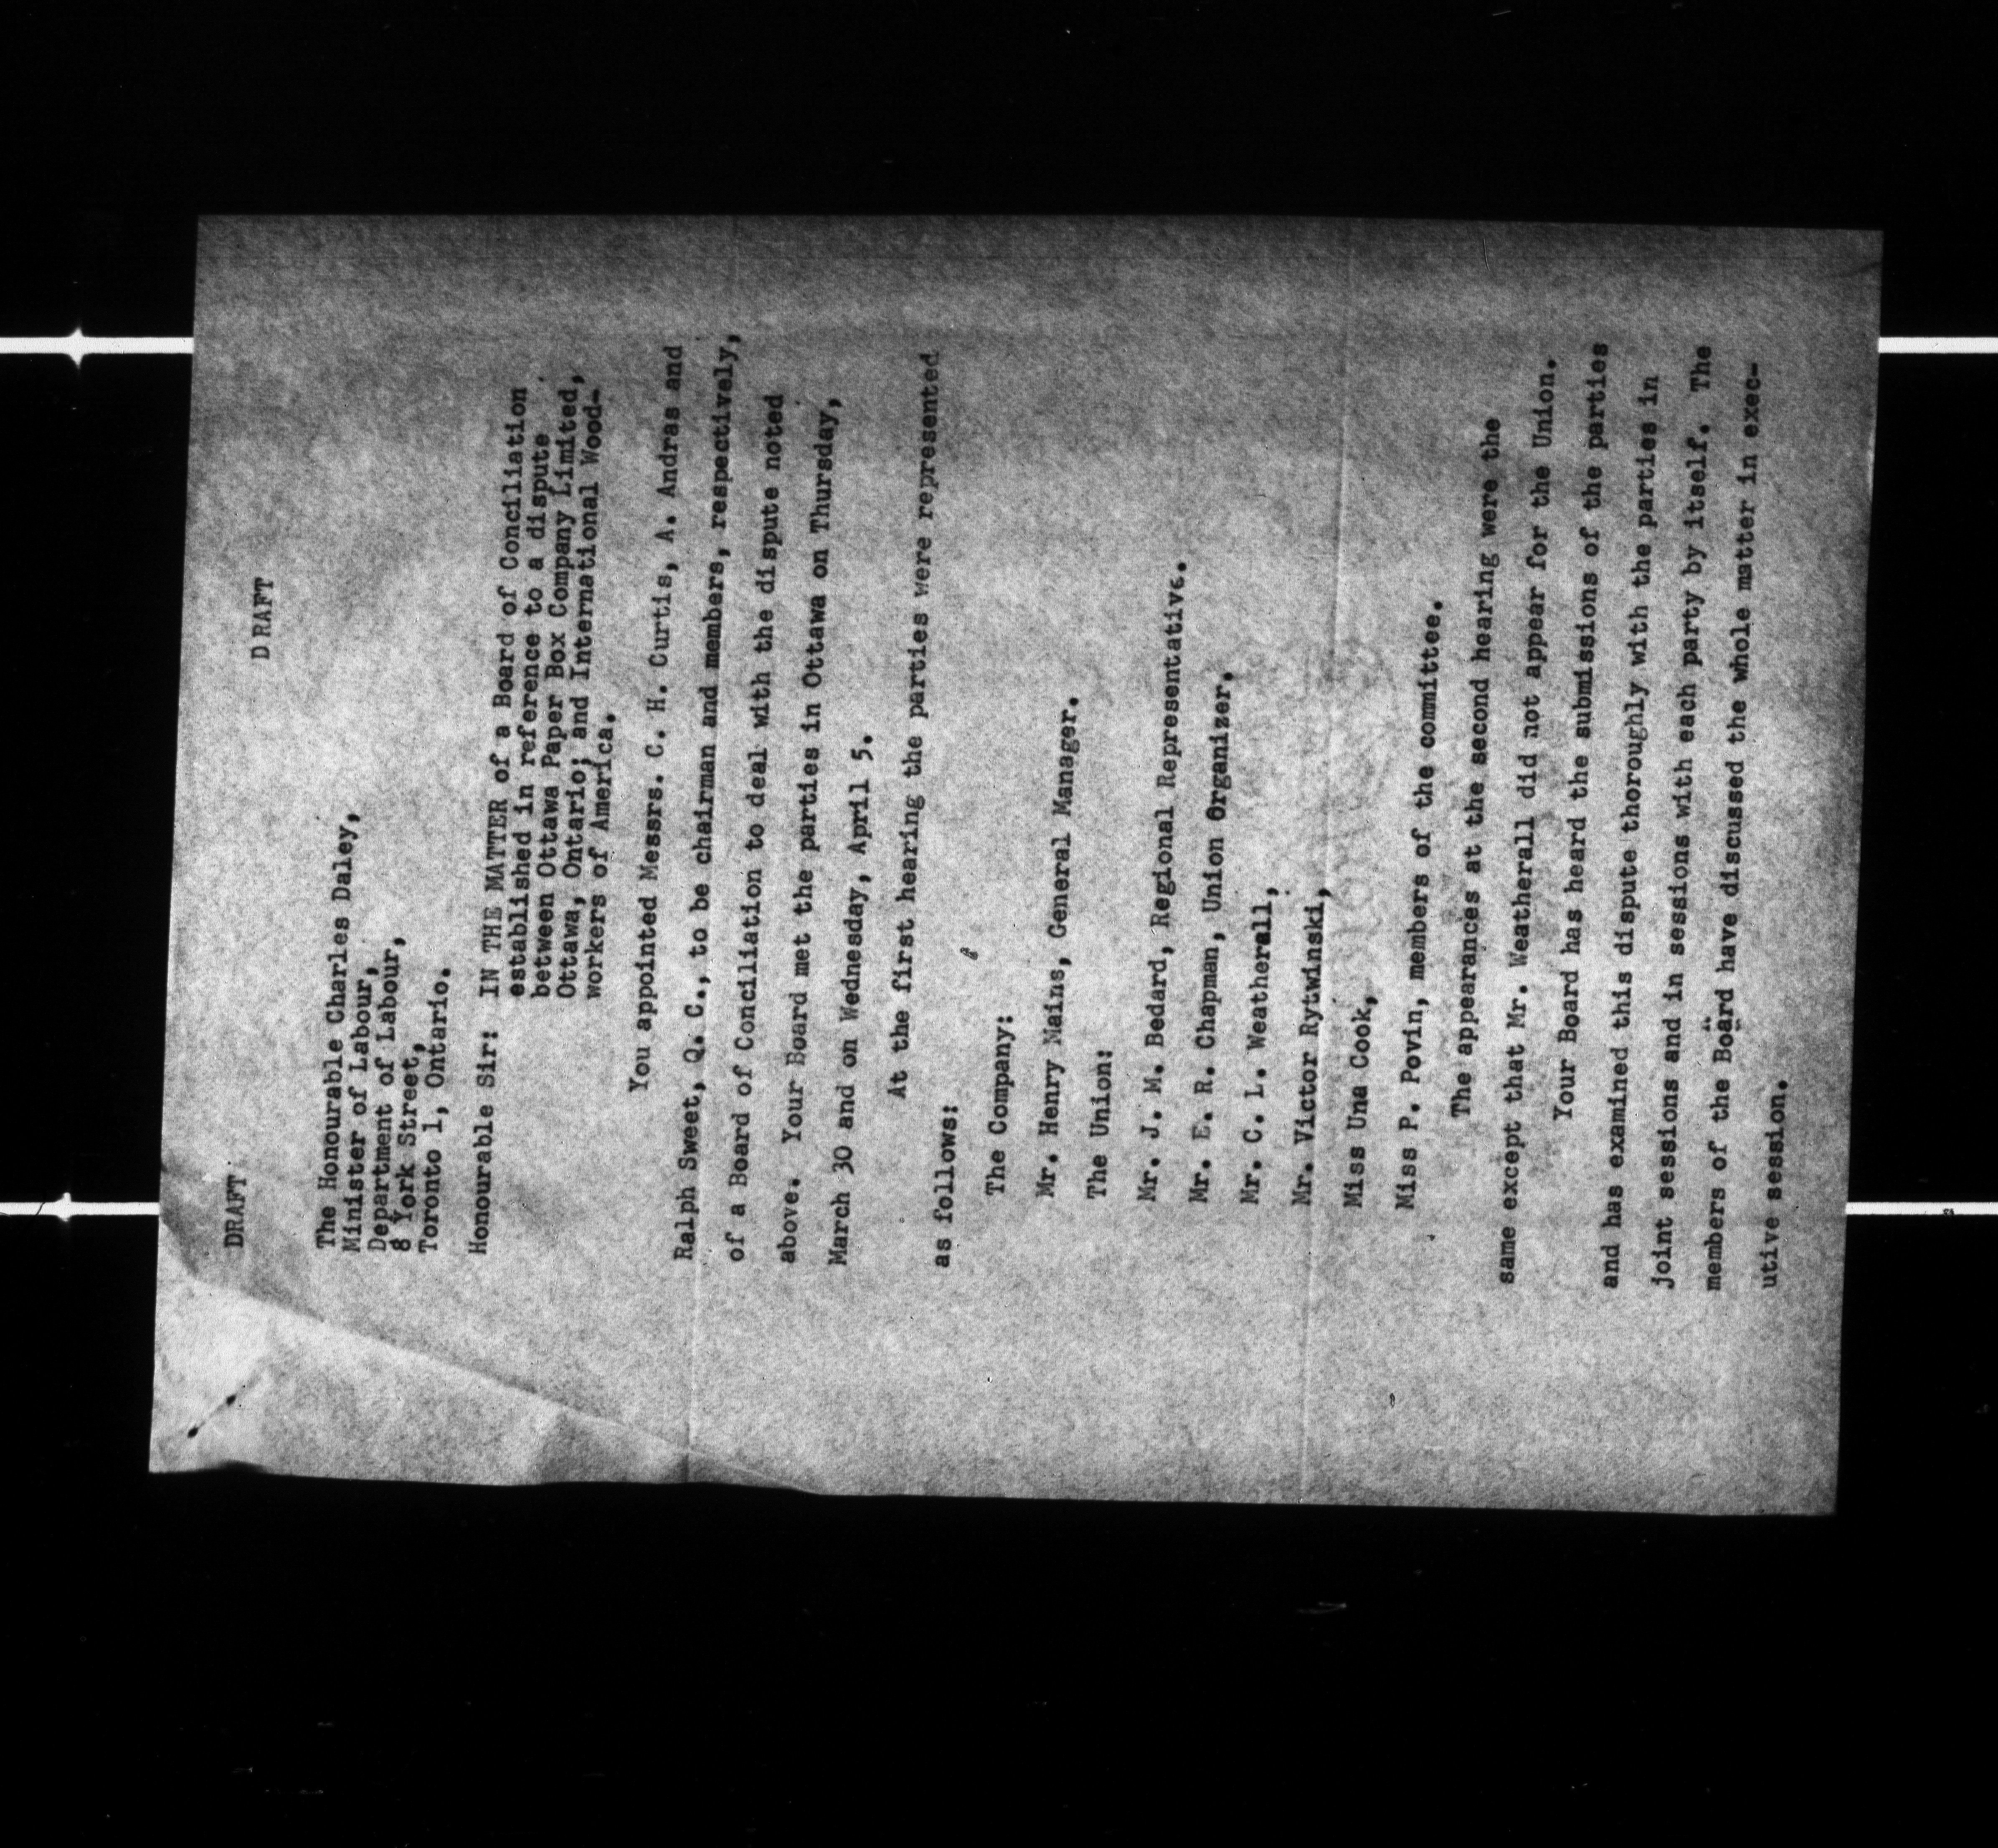 DRAFT
DRAFT
The Honourable Charles Daley,
Minister of Labour,
Department of Labour,
8 York Street,
Toronto 1, Ontario.
Honourable Sir: IN THE MATTER of a Board of Conciliation
established in reference to a dispute
between Ottawa Paper Box Company Limited,
Ottawa, Ontario; and International Wood-
workers of America.
You appointed Messrs. C. H. Curtis, A. Andras and
Ralph Sweet, Q. C., to be chairman and members, respectively,
of a Board of Conciliation to deal with the dispute noted
above. Your Board met the parties in Ottawa on Thursday,
March 30 and on Wednesday, April 5.
At the first hearing the parties were represented
as follows:
The Company:
Mr. Henry Mains, General Manager.
The Union:
Mr. J. M. Bedard, Regional Representative.
Mr. E. R. Chapman, Union Organizer.
Mr. C. L. Weatherall,
Mr. Victor Rytwinski,
Miss Una Cook,
Miss P. Povin, members of the committee.
The appearances at the second hearing were the
same except that Mr. Weatherall did not appear for the Union.
Your Board has heard the submissions of the parties
and has examined this dispute thoroughly with the parties in
joint sessions and in sessions with each party by itself. The
members of the Board have discussed the whole matter in exec-
utive session.